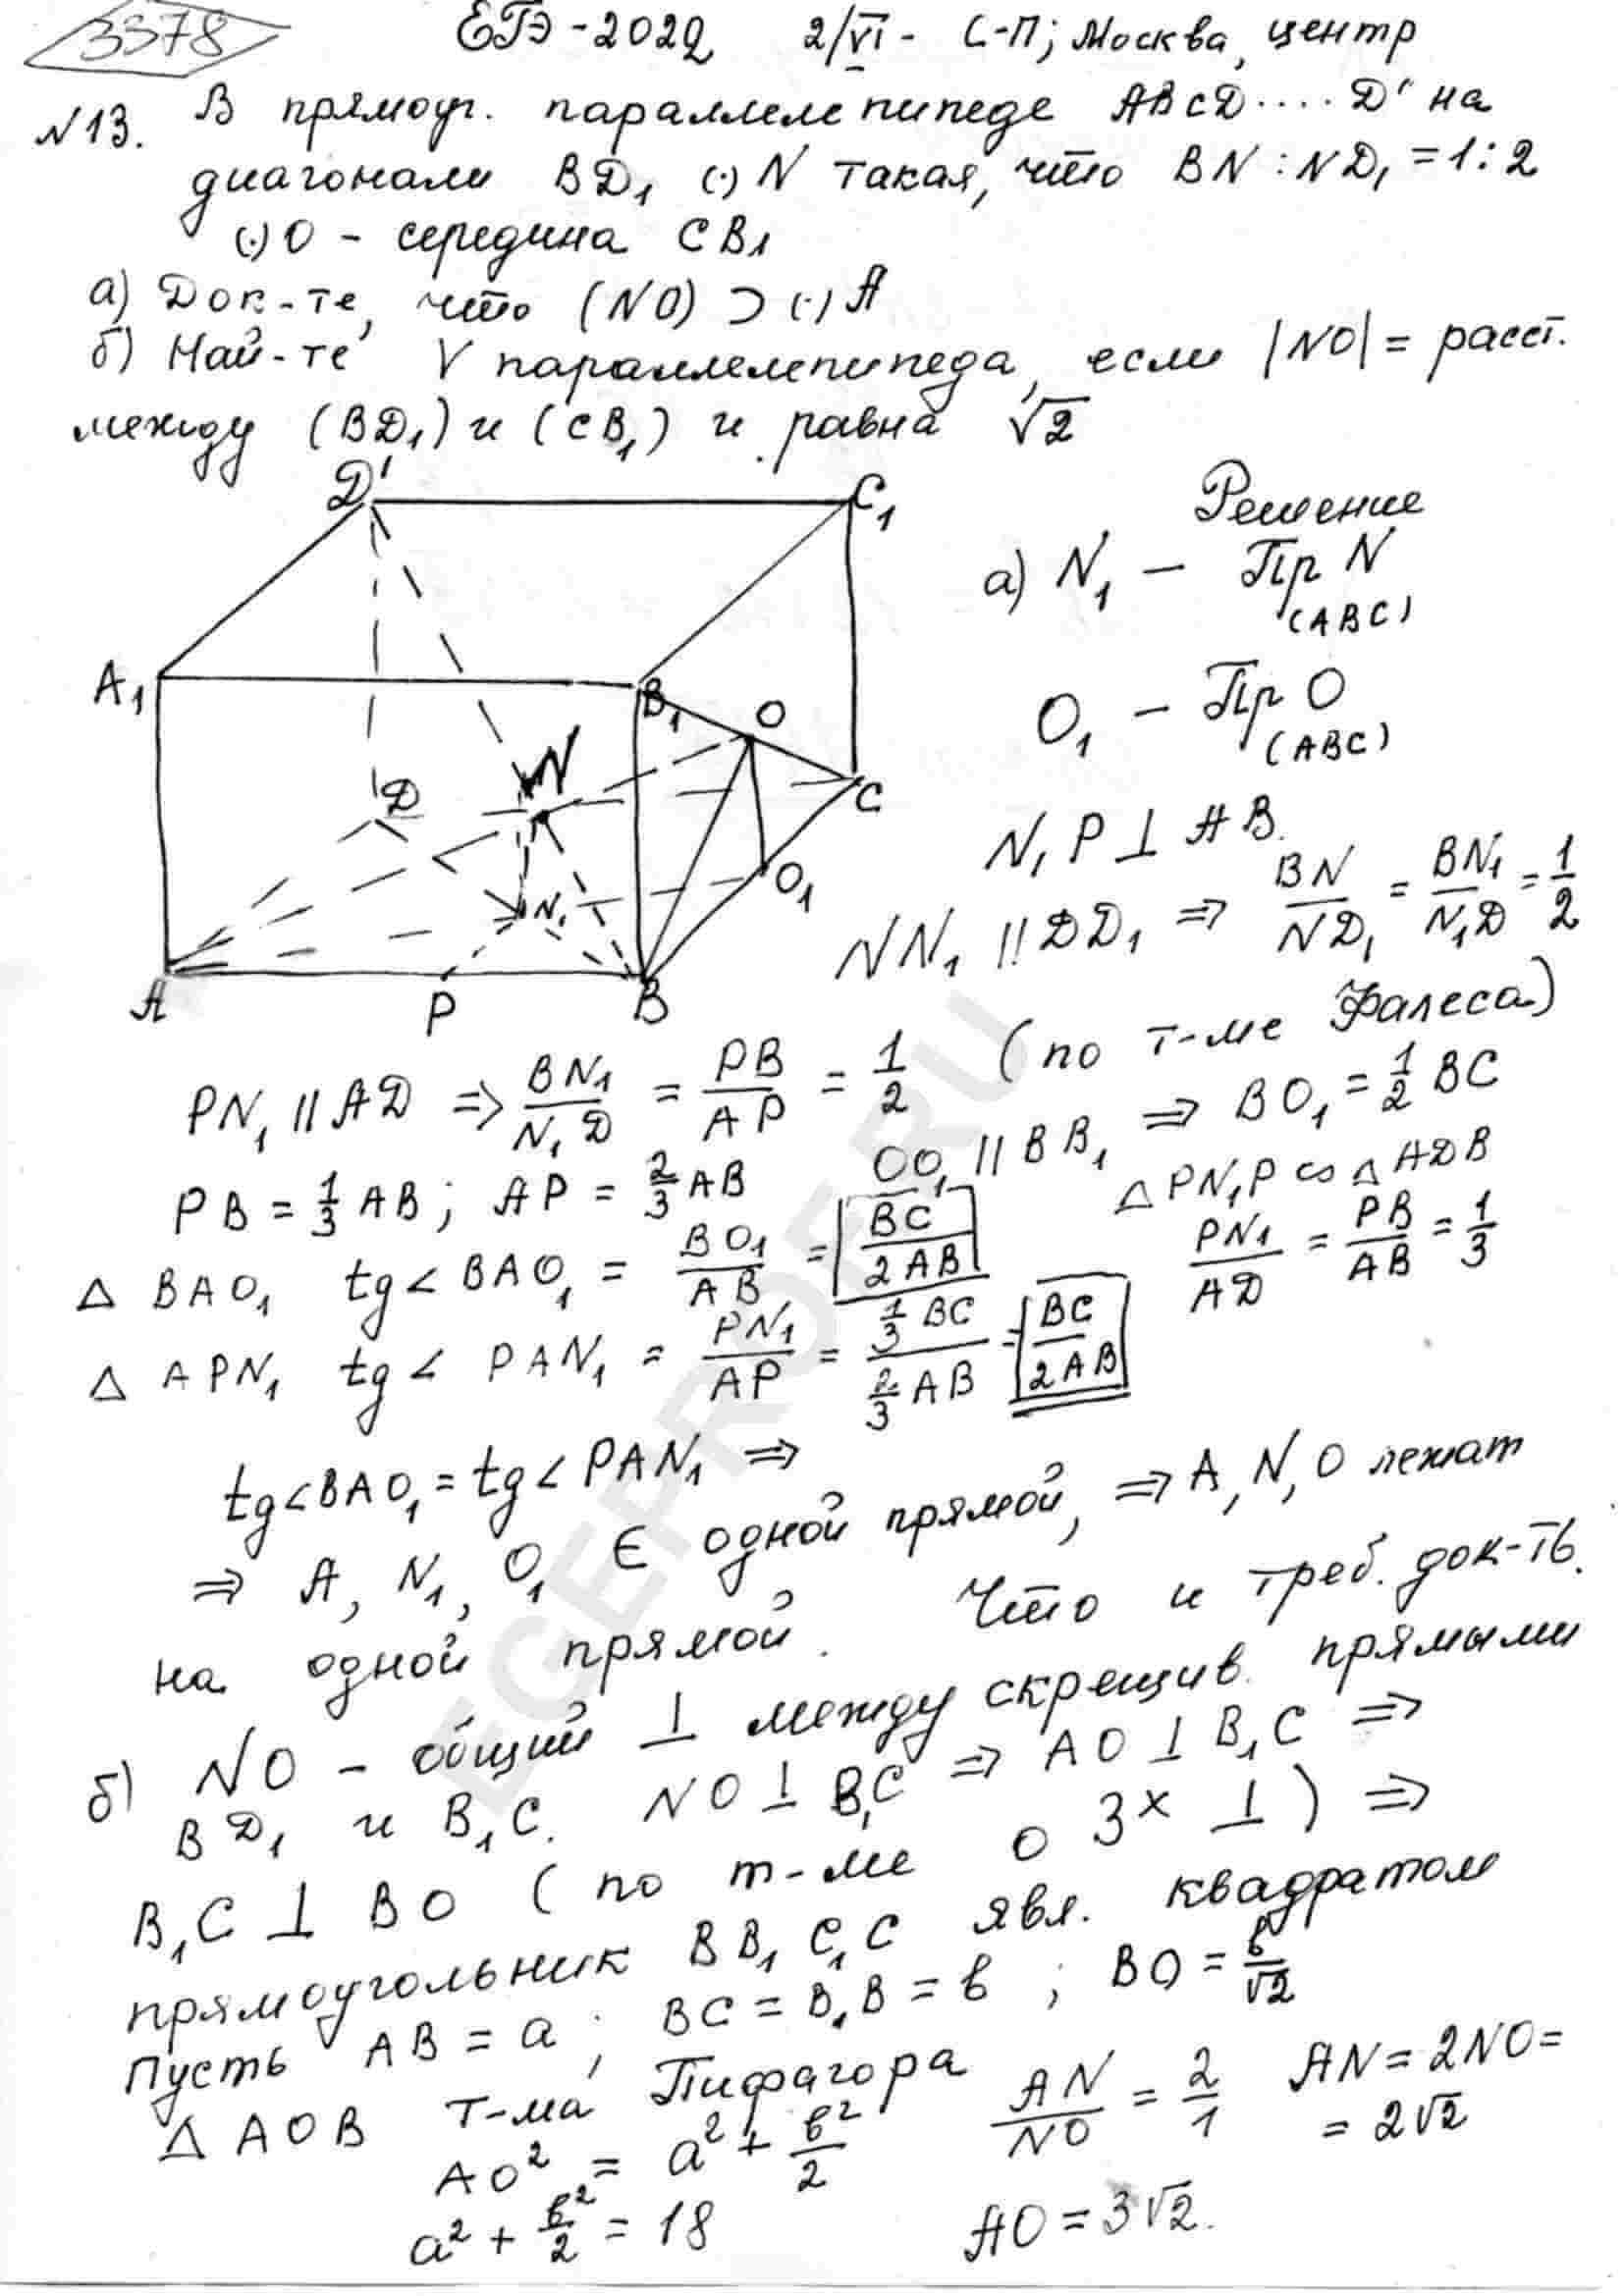 3378 ЕГЭ-2022 2/VI - С-П; Москва, центр
№13. В прямоуг. параллелепипеде ABCD....D' на
диагонали BD₁ (·) N такая, что BN : ND₁ = 1:2
(·) O - середина CB₁
а) Док-те, что (NO) ⊃ (·) A
б) Най-те V параллелепипеда, если |NO| = расст.
между (BD₁) и (CB₁) и равна √2
D' C₁
A₁ B₁ O
D N C
N₁ O₁
A P B
Решение
а) N₁ - Пр N (ABC)
O₁ - Пр O (ABC)
N₁P ⊥ AB.
NN₁ || DD₁ ⇒ BN/ND₁ = BN₁/N₁D = 1/2
(по т-ме Фалеса)
PN₁ || AD ⇒ BN₁/N₁D = PB/AP = 1/2
OO₁ || BB₁ ⇒ BO₁ = 1/2 BC
PB = 1/3 AB; AP = 2/3 AB
△ PN₁P ∽ △ ADB
△ BAO₁ tg < BAO₁ = BO₁/AB = BC/2AB
PN₁/AD = PB/AB = 1/3
△ APN₁ tg < PAN₁ = PN₁/AP = 1/3 BC / 2/3 AB = BC/2AB
tg < BAO₁ = tg < PAN₁ ⇒
⇒ A, N₁, O₁ ∈ одной прямой, ⇒ A, N, O лежат
на одной прямой. Что и треб. док-ть.
б) NO - общий ⊥ между скрещив. прямыми
BD₁ и B₁C. NO ⊥ B₁C ⇒ AO ⊥ B₁C ⇒
B₁C ⊥ BO (по т-ме о 3ˣ ⊥) ⇒
прямоугольник BB₁C₁C явл. квадратом
Пусть AB = a; BC = B₁B = b; BO = b/√2
△ AOB т-ма Пифагора AN/NO = 2/1 AN = 2NO =
= 2√2
AO² = a² + b²/2
a² + b²/2 = 18 AO = 3√2.
EGEPROF.RU